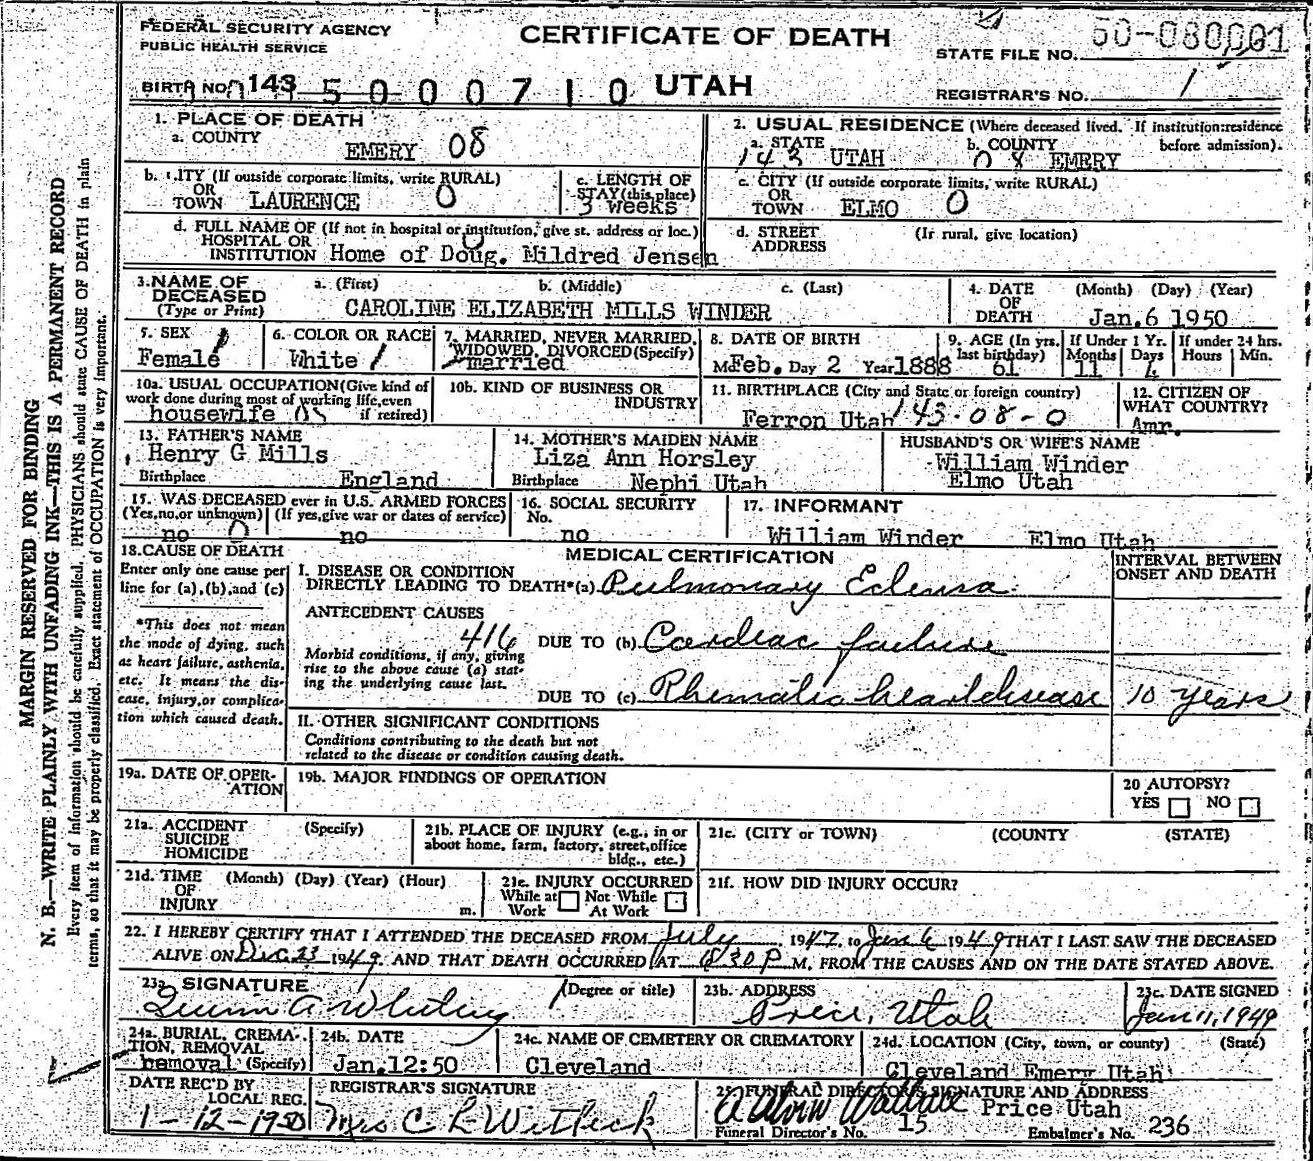 FEDERAL SECURITY AGENCY
PUBLIC HEALTH SERVICE
CERTIFICATE OF DEATH
UTAH
STATE FILE NO. 50-080001
BIRTH NO. 143 5000710
REGISTRAR'S NO. 1
1. PLACE OF DEATH
a. COUNTY EMERY 08
2. USUAL RESIDENCE (Where deceased lived. If institution:residence before admission).
a. STATE 143 UTAH b. COUNTY 08 EMERY
b. CITY (If outside corporate limits, write RURAL)
OR TOWN LAURENCE 0
c. LENGTH OF STAY (this place) 3 weeks
c. CITY (If outside corporate limits, write RURAL)
OR TOWN ELMO 0
d. FULL NAME OF (If not in hospital or institution, give st. address or loc.)
HOSPITAL OR INSTITUTION Home of Doug. Mildred Jensen
d. STREET ADDRESS (If rural, give location)
3. NAME OF DECEASED (Type or Print)
a. (First) b. (Middle) c. (Last)
CAROLINE ELIZABETH MILLS WINDER
4. DATE OF DEATH (Month) (Day) (Year)
Jan. 6 1950
5. SEX Female
6. COLOR OR RACE White
7. MARRIED, NEVER MARRIED, WIDOWED, DIVORCED (Specify) married
8. DATE OF BIRTH
Feb. Day 2 Year 1888
9. AGE (In yrs. last birthday) 61
If Under 1 Yr. Months 11 Days 4
If under 24 hrs. Hours Min.
10a. USUAL OCCUPATION (Give kind of work done during most of working life, even if retired) housewife
10b. KIND OF BUSINESS OR INDUSTRY
11. BIRTHPLACE (City and State or foreign country)
Ferron Utah 143-08-0
12. CITIZEN OF WHAT COUNTRY? Amr.
13. FATHER'S NAME
Henry G Mills
Birthplace England
14. MOTHER'S MAIDEN NAME
Liza Ann Horsley
Birthplace Nephi Utah
HUSBAND'S OR WIFE'S NAME
William Winder
Elmo Utah
15. WAS DECEASED ever in U.S. ARMED FORCES
(Yes, no, or unknown) (If yes, give war or dates of service)
no 0 no
16. SOCIAL SECURITY No.
no
17. INFORMANT
William Winder Elmo Utah
18. CAUSE OF DEATH
Enter only one cause per line for (a), (b), and (c)
*This does not mean the mode of dying, such as heart failure, asthenia, etc. It means the disease, injury, or complication which caused death.
MEDICAL CERTIFICATION
INTERVAL BETWEEN ONSET AND DEATH
I. DISEASE OR CONDITION
DIRECTLY LEADING TO DEATH*(a) Pulmonary Edema
ANTECEDENT CAUSES
416
Morbid conditions, if any, giving rise to the above cause (a) stating the underlying cause last.
DUE TO (b) Cardiac failure
DUE TO (c) Rhematic heart disease 10 years
II. OTHER SIGNIFICANT CONDITIONS
Conditions contributing to the death but not related to the disease or condition causing death.
19a. DATE OF OPERATION
19b. MAJOR FINDINGS OF OPERATION
20 AUTOPSY?
YES NO
21a. ACCIDENT SUICIDE HOMICIDE (Specify)
21b. PLACE OF INJURY (e.g., in or about home, farm, factory, street, office bldg., etc.)
21c. (CITY or TOWN) (COUNTY) (STATE)
21d. TIME OF INJURY (Month) (Day) (Year) (Hour) m.
21e. INJURY OCCURRED
While at Work Not While At Work
21f. HOW DID INJURY OCCUR?
22. I HEREBY CERTIFY THAT I ATTENDED THE DECEASED FROM July 1947, to Jan 6 1949 THAT I LAST SAW THE DECEASED
ALIVE ON Dec. 23 1949. AND THAT DEATH OCCURRED AT 8:30 P M. FROM THE CAUSES AND ON THE DATE STATED ABOVE.
23a. SIGNATURE (Degree or title)
Quinn A Whiting
23b. ADDRESS
Price, Utah
23c. DATE SIGNED
Jan 11, 1949
24a. BURIAL, CREMATION, REMOVAL (Specify) removal
24b. DATE
Jan. 12:50
24c. NAME OF CEMETERY OR CREMATORY
Cleveland
24d. LOCATION (City, town, or county) (State)
Cleveland Emery Utah
DATE REC'D BY LOCAL REG.
1-12-1950
REGISTRAR'S SIGNATURE
Mrs C L
25. FUNERAL DIRECTOR'S SIGNATURE AND ADDRESS
Wallace Price Utah
Funeral Director's No. 15 Embalmer's No. 236
MARGIN RESERVED FOR BINDING
N. B.—WRITE PLAINLY WITH UNFADING INK—THIS IS A PERMANENT RECORD
Every item of information should be carefully supplied. PHYSICIANS should state CAUSE OF DEATH in plain
terms, so that it may be properly classified. Exact statement of OCCUPATION is very important.